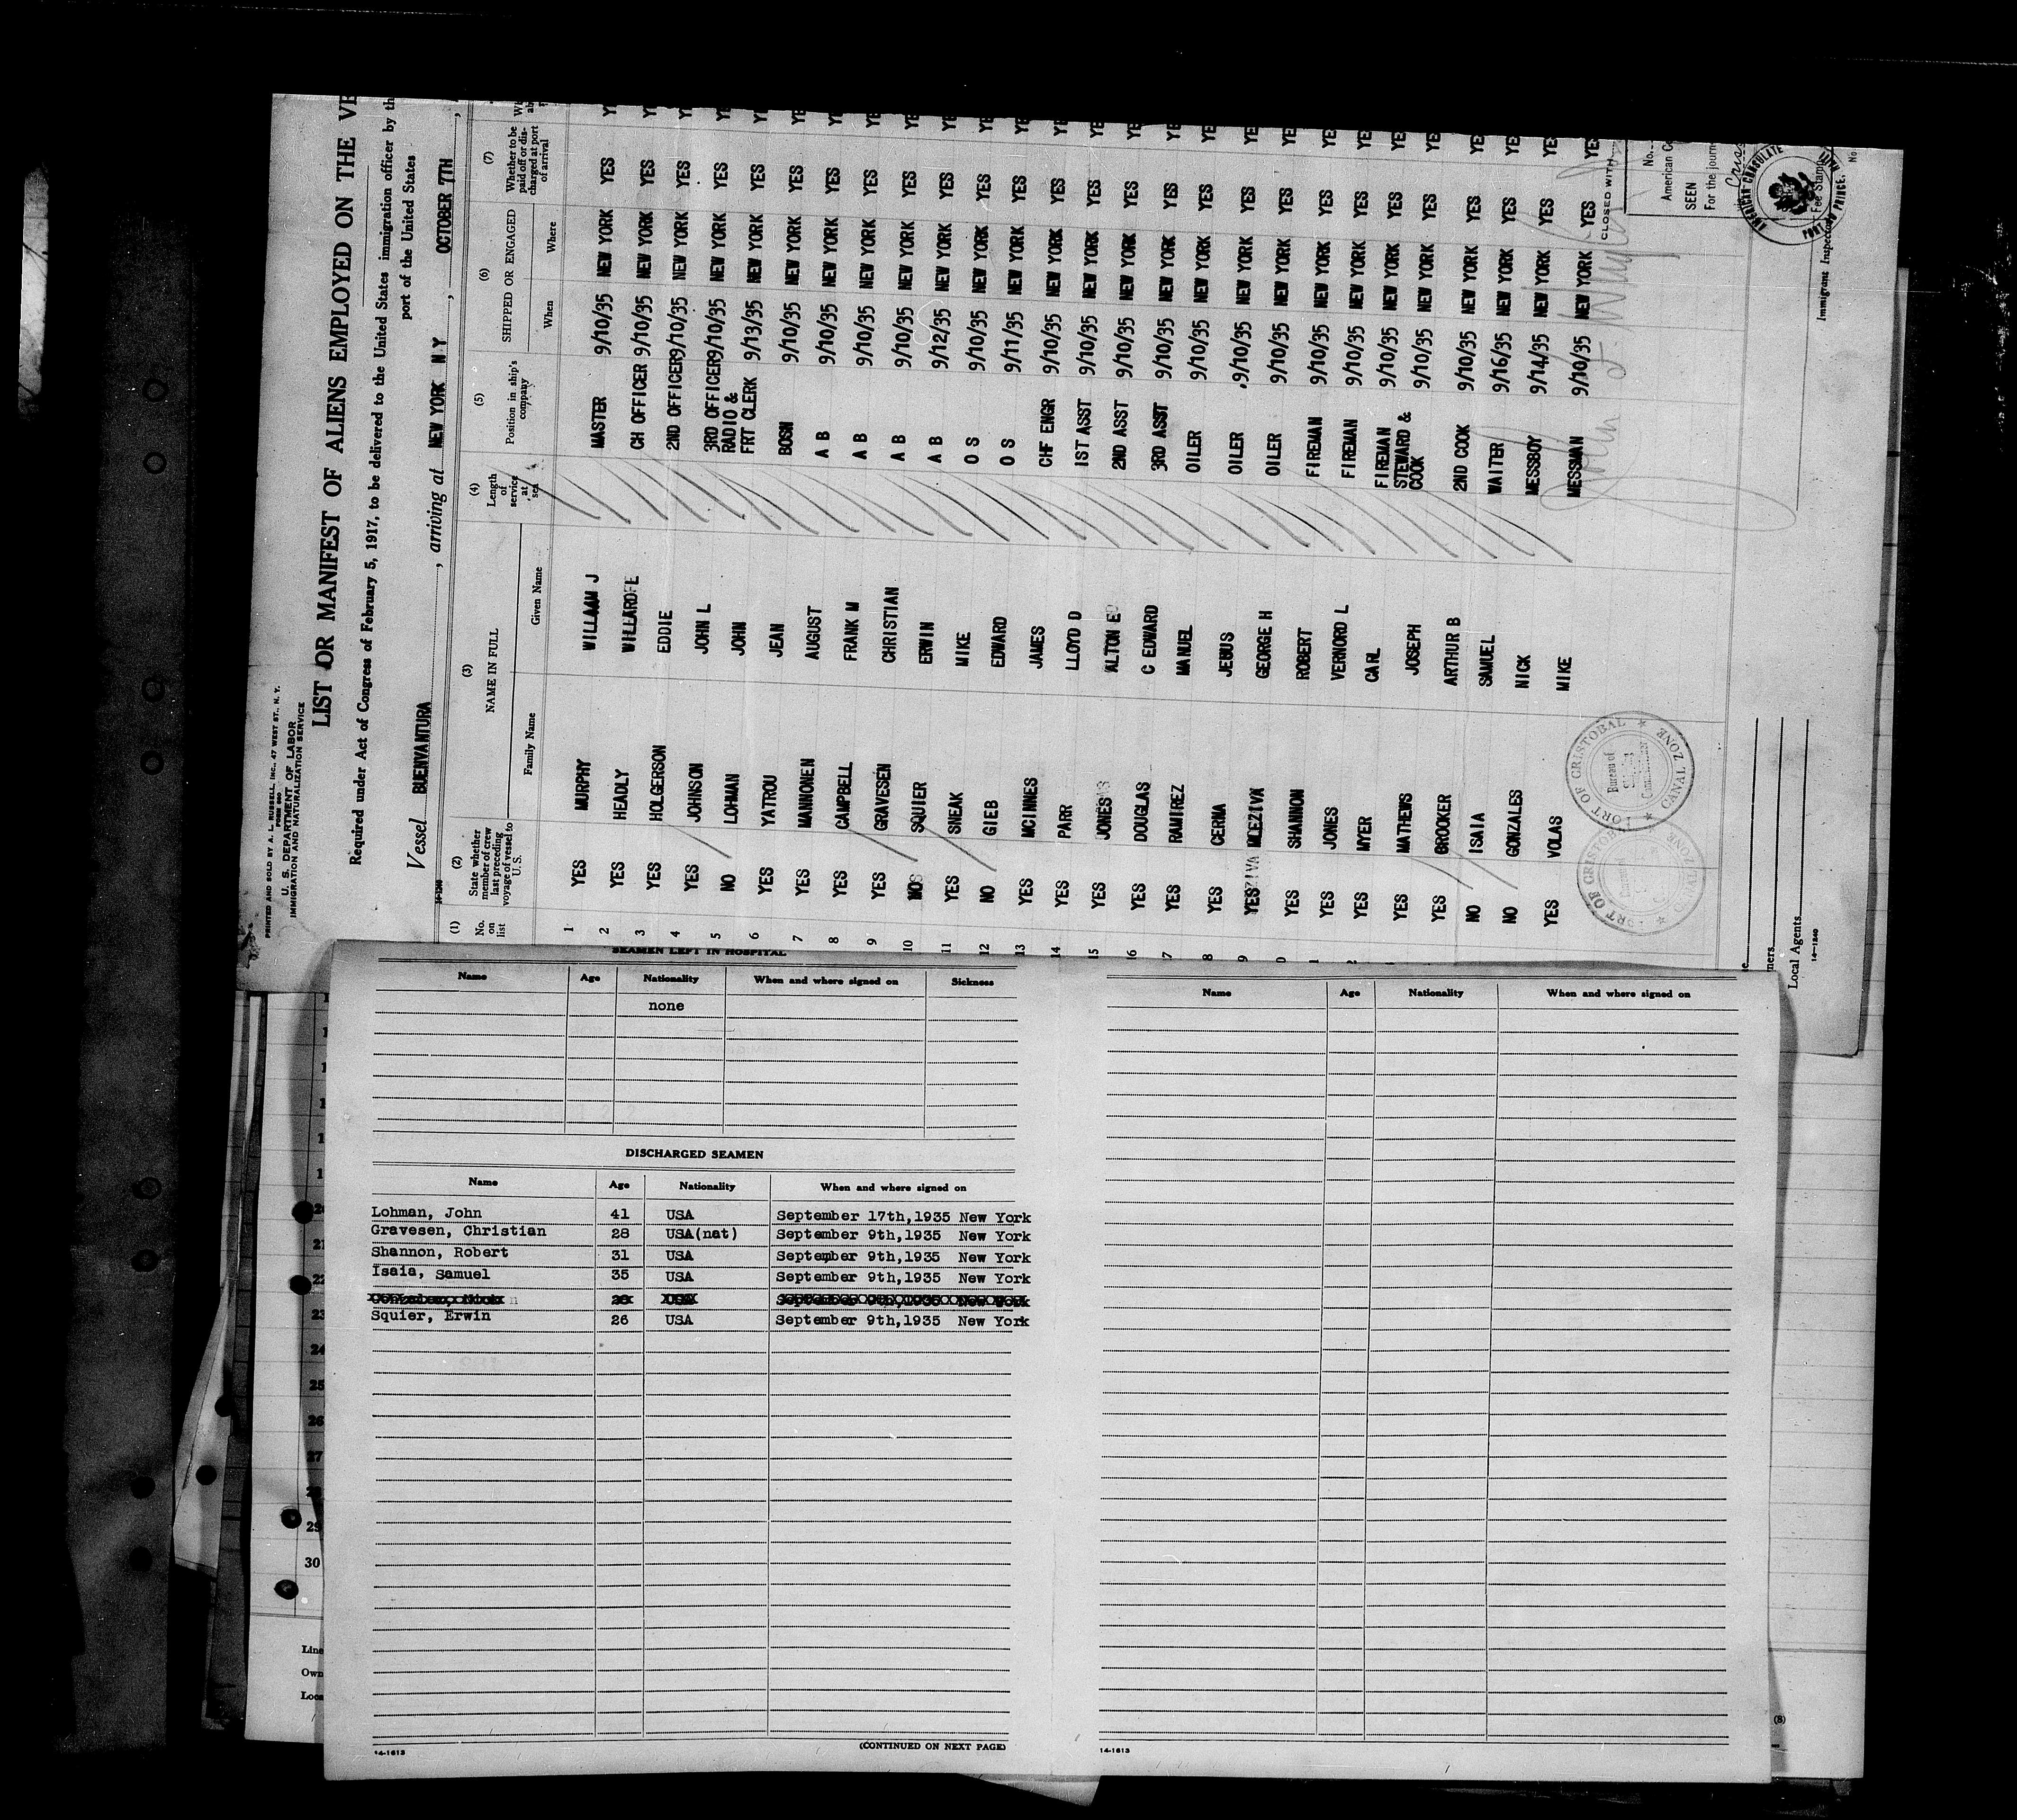 PRINTED AND SOLD BY A. L. RUSSELL, INC., 47 WEST ST., N. Y.
FORM 680
U. S. DEPARTMENT OF LABOR
IMMIGRATION AND NATURALIZATION SERVICE
LIST OR MANIFEST OF ALIENS EMPLOYED ON THE
Required under Act of Congress of February 5, 1917, to be delivered to the United States immigration officer by
port of the United States
Vessel BUENVANTURA, arriving at NEW YORK N Y, OCTOBER 7TH,
(1) (2) (3) (4) (5) (6) (7)
No. on list State whether member of crew last preceding voyage of vessel to U. S. NAME IN FULL Length of service at sea Position in ship's company SHIPPED OR ENGAGED Whether to be paid off or discharged at port of arrival
Family Name Given Name When Where
1 YES MURPHY WILLAAM J MASTER 9/10/35 NEW YORK YES
2 YES HEADLY WILLARD E CH OFFICER 9/10/35 NEW YORK YES
3 YES HOLGERSON EDDIE 2ND OFFICER 9/10/35 NEW YORK YES
4 YES JOHNSON JOHN L 3RD OFFICER 9/10/35 NEW YORK YES
5 NO LOHMAN JOHN RADIO & FRT CLERK 9/13/35 NEW YORK YES
6 YES YATROU JEAN BOSN 9/10/35 NEW YORK YES
7 YES MANNONEN AUGUST A B 9/10/35 NEW YORK YES
8 YES CAMPBELL FRANK M A B 9/10/35 NEW YORK YES
9 YES GRAVESEN CHRISTIAN A B 9/10/35 NEW YORK YES
10 NO SQUIER ERWIN A B 9/12/35 NEW YORK YES
11 YES SNEAK MIKE O S 9/10/35 NEW YORK YES
12 NO GIEB EDWARD O S 9/11/35 NEW YORK YES
13 YES MCINNES JAMES CHF ENGR 9/10/35 NEW YORK YES
14 YES PARR LLOYD D 1ST ASST 9/10/35 NEW YORK YES
15 YES JONES ALTON E 2ND ASST 9/10/35 NEW YORK YES
6 YES DOUGLAS C EDWARD 3RD ASST 9/10/35 NEW YORK YES
7 YES RAMIREZ MANUEL OILER 9/10/35 NEW YORK YES
8 YES CERNA JEBUS OILER 9/10/35 NEW YORK YES
9 YES MLEZIVA GEORGE H OILER 9/10/35 NEW YORK YES
0 YES SHANNON ROBERT FIREMAN 9/10/35 NEW YORK YES
1 YES JONES VERNORD L FIREMAN 9/10/35 NEW YORK YES
2 YES MYER CARL FIREMAN 9/10/35 NEW YORK YES
YES MATHEWS JOSEPH STEWARD & COOK 9/10/35 NEW YORK YES
YES BROCKER ARTHUR B 2ND COOK 9/10/35 NEW YORK YES
NO ISAIA SAMUEL WAITER 9/16/35 NEW YORK YES
NO GONZALES NICK MESSBOY 9/14/35 NEW YORK YES
YES VOLAS MIKE MESSMAN 9/10/35 NEW YORK YES
CLOSED WITH
No.
American
SEEN
For the
AMERICAN CONSULATE
PORT AU PRINCE
Fee Stamp
Immigrant Inspector
PORT OF CRISTOBAL
Bureau of
CANAL ZONE
PORT OF CRISTOBAL
CANAL ZONE
Local Agents
14-1240
SEAMEN LEFT IN HOSPITAL
Name Age Nationality When and where signed on Sickness
none
DISCHARGED SEAMEN
Name Age Nationality When and where signed on
Lohman, John 41 USA September 17th,1935 New York
Gravesen, Christian 28 USA(nat) September 9th,1935 New York
Shannon, Robert 31 USA September 9th,1935 New York
Isaia, Samuel 35 USA September 9th,1935 New York
Squier, Erwin 26 USA September 9th,1935 New York
(CONTINUED ON NEXT PAGE)
14-1613
Name Age Nationality When and where signed on
14-1613
21
22
23
24
25
26
27
28
29
30
(8)